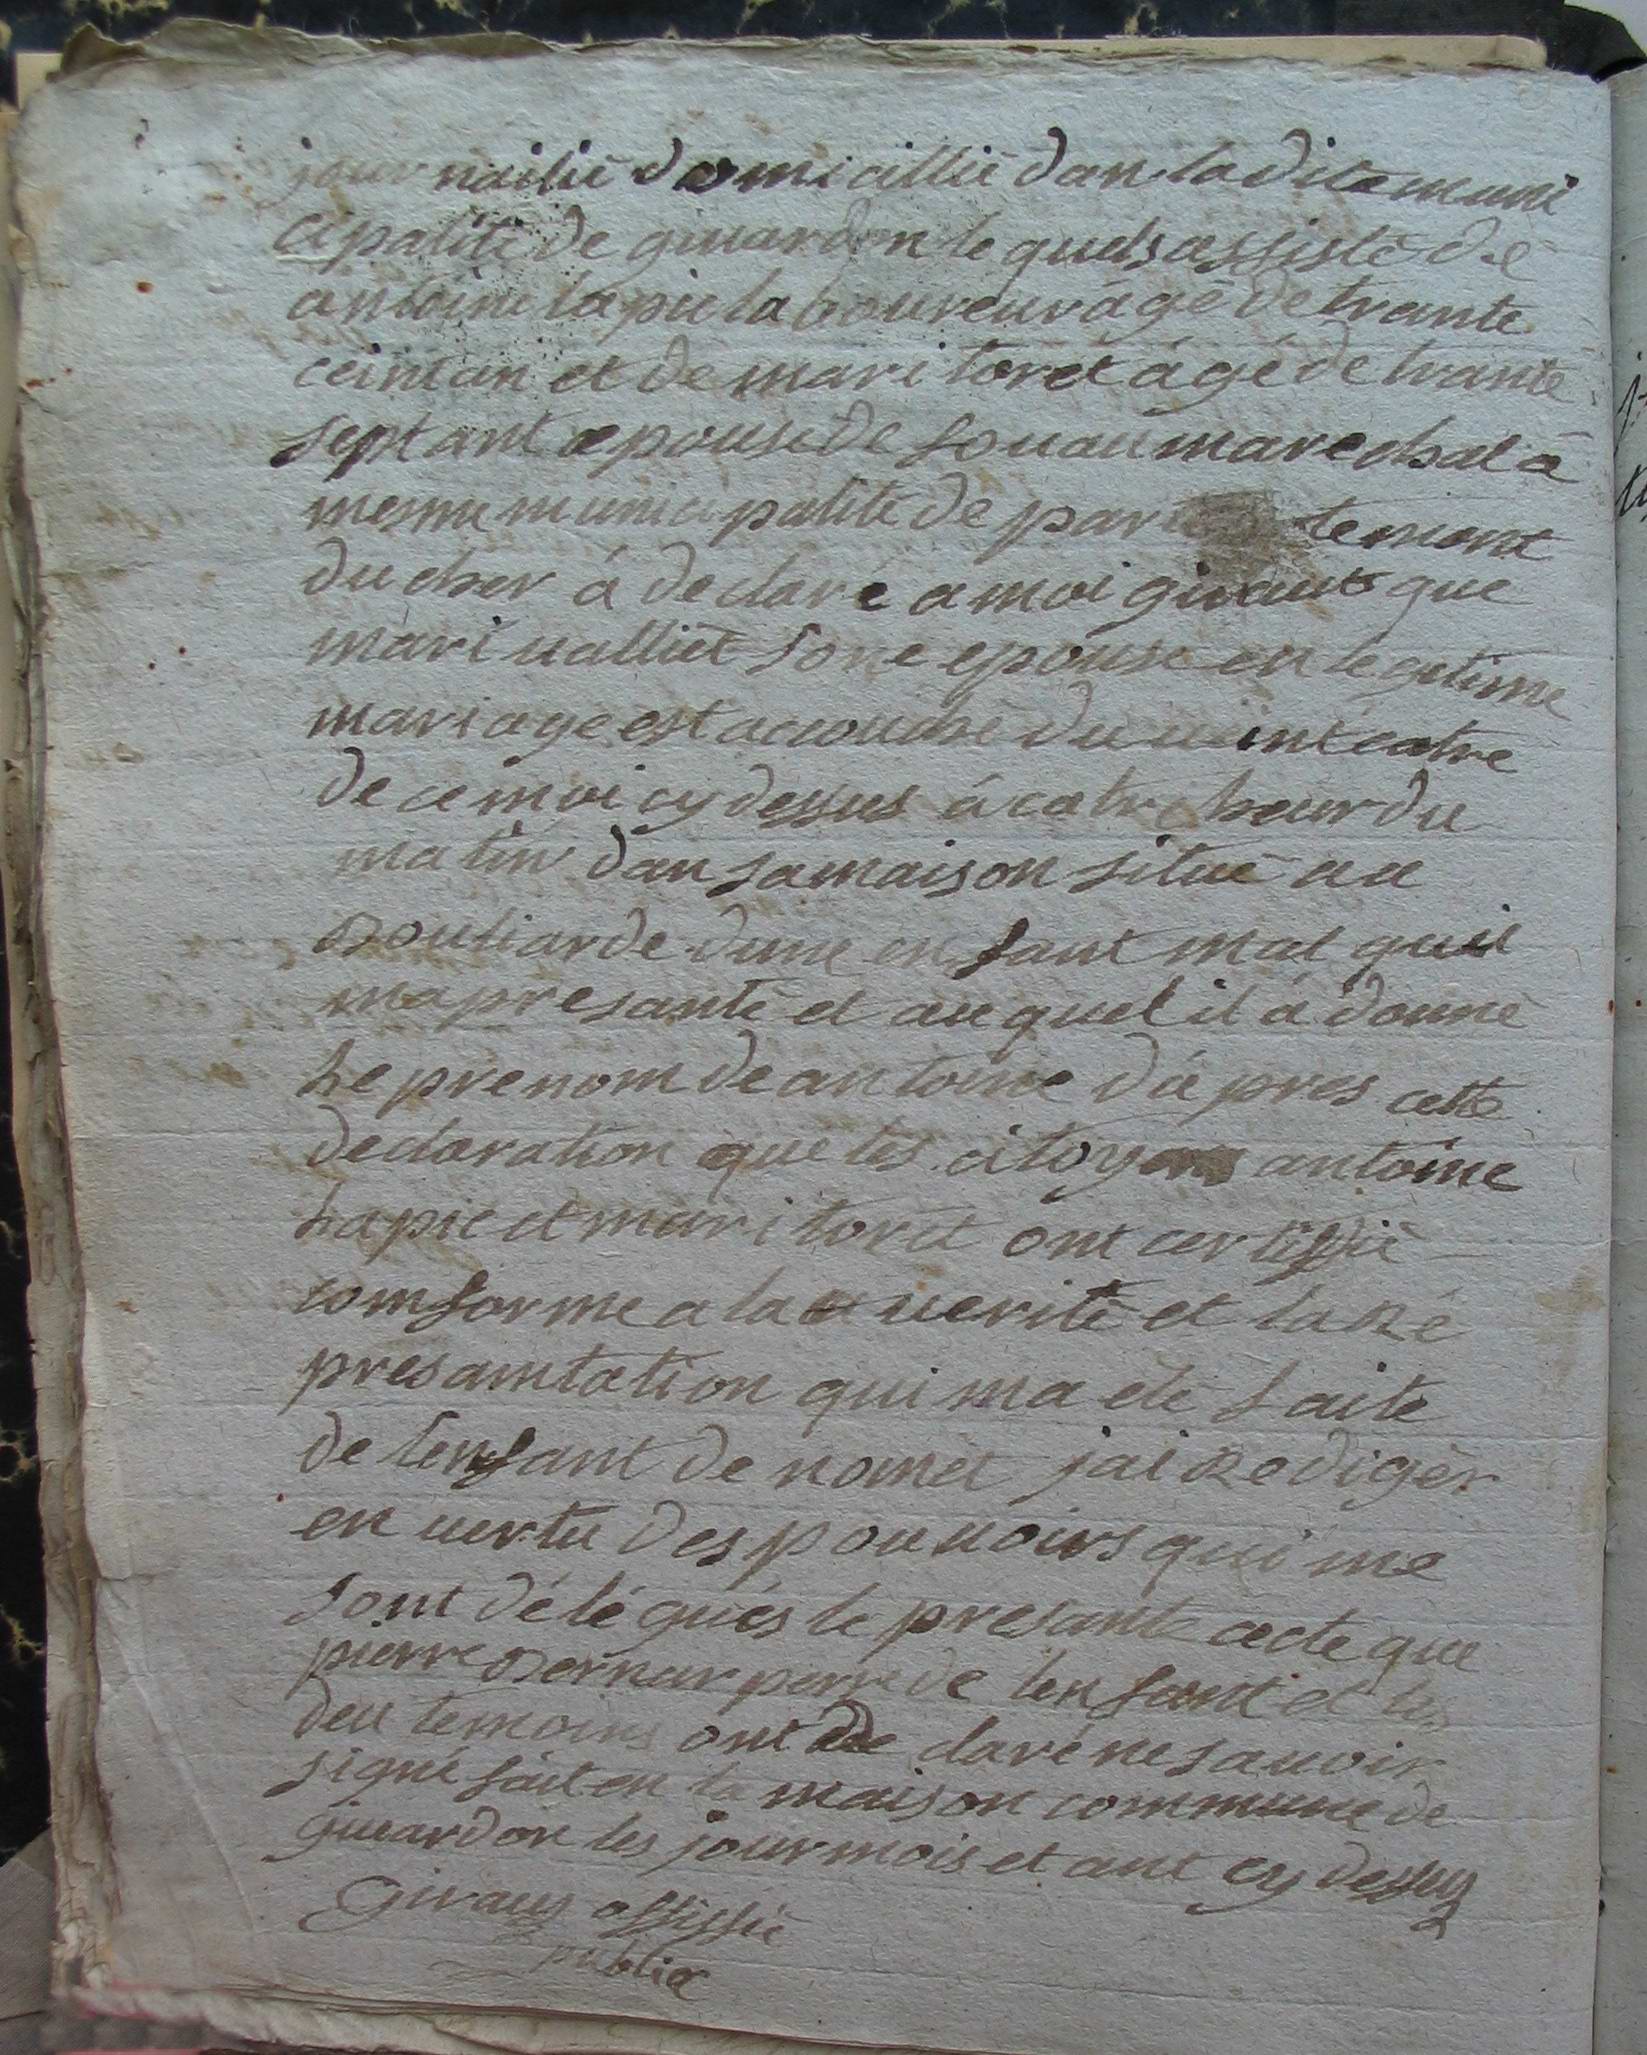 journailié domicillié dan la dite muni
cipalité de giuardon le quels assisté de
antoine lapie laboureur agé de trante
ceint an et de mari toret ágé de trante
sept ant epouse de souau marechal à
meme municipalité de par temont
du cher á declaré a moi giraus que
mari ualliet sone epouse en legetime
mariage est accouché du uint catre
de ce moi cy dessus á catre heur du
matin dan sa maison situé au
boutiarde dune enfant mal quil
ma presanté et au quel il á donné
le prenom de antoine dápres cette
declaration que les citoyens antoine
lapie et mari toret ont certiffié
comforme a la uerité et la Ré
presamtation qui ma eté faite
de lenfant de nomet jai Redigér
en uertu des pouuoirs qui me
sont délégués le presante acte que
pierre bernar perre de lenfant et les
deu temoins ont de claré ne sauoir
signé fait en la maison commune de
giuardon les jour mois et ant cy dessus
Giraus offissié
publice